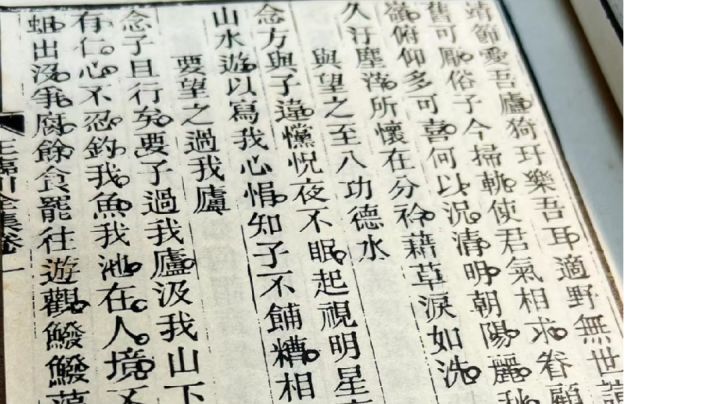 靖節愛吾廬猗玗樂吾耳適野無世諠
舊可厭俗子今掃軌使君氣相求眷顧
嶺俯仰多可喜何以況清明朝陽麗秋
久汙塵滓所懷在分衿藉草淚如洗
與望之至八功德水
念方與子違戃怳夜不眠起視明星
山水遊以寫我心悁知子不餔糟相
要望之過我廬
念子且行矣要子過我廬汲我山下
存仁心不忍釣我魚我池在人境不
蛆出沒爭腐餘食罷往遊觀鱍鱍藻
王臨川全集卷一